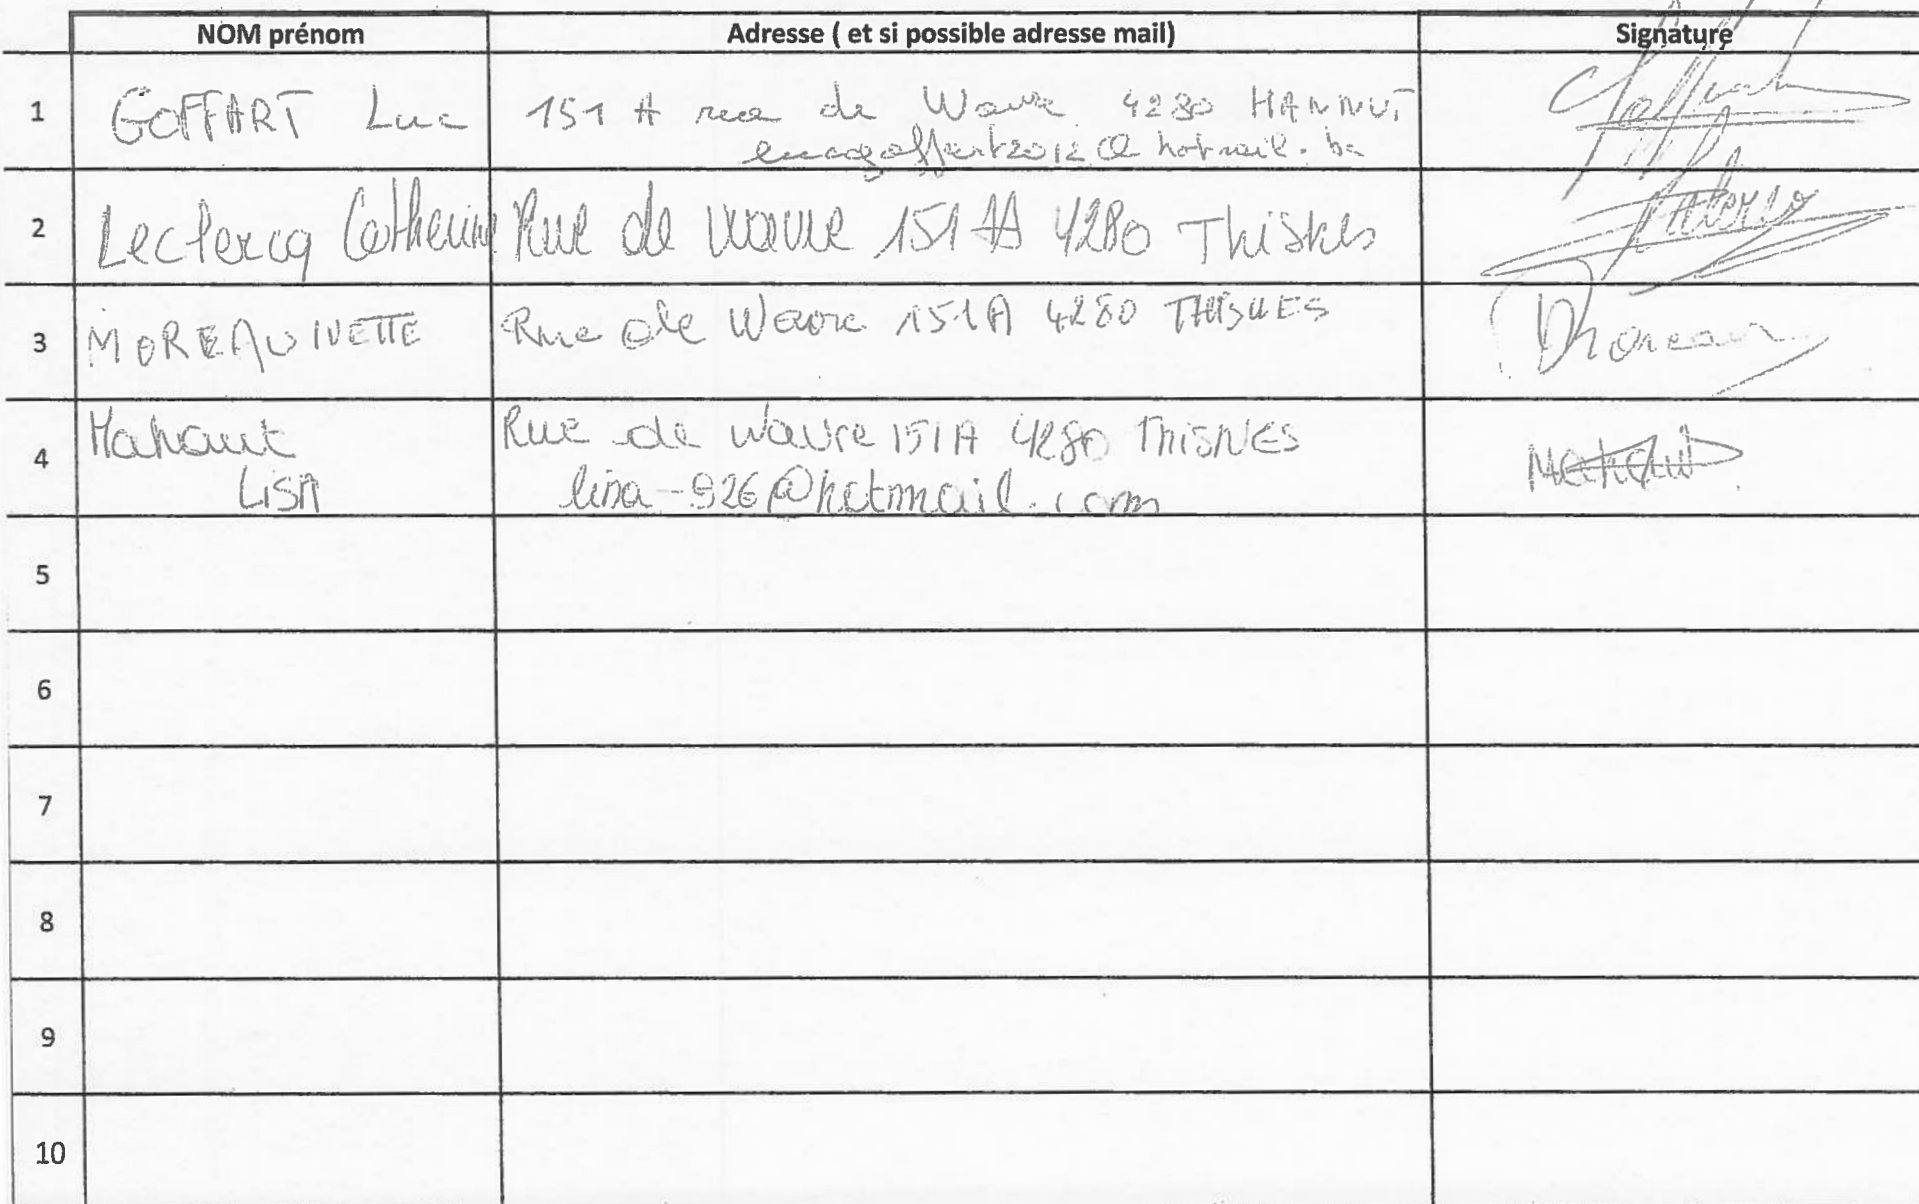 NOM prénom Adresse ( et si possible adresse mail) Signature
1 GOFFART Luc 151 A rue de Wavre 4280 HANNUT
lucgoffart2012@hotmail.be
2 Leclercq Catherine Rue de Wavre 151 A 4280 Thisnes
3 MOREAU IVETTE Rue de Wavre 151A 4280 THISNES
4 Mahaut Rue de Wavre 151A 4280 THISNES
LISA lisa-926@hotmail.com
5
6
7
8
9
10